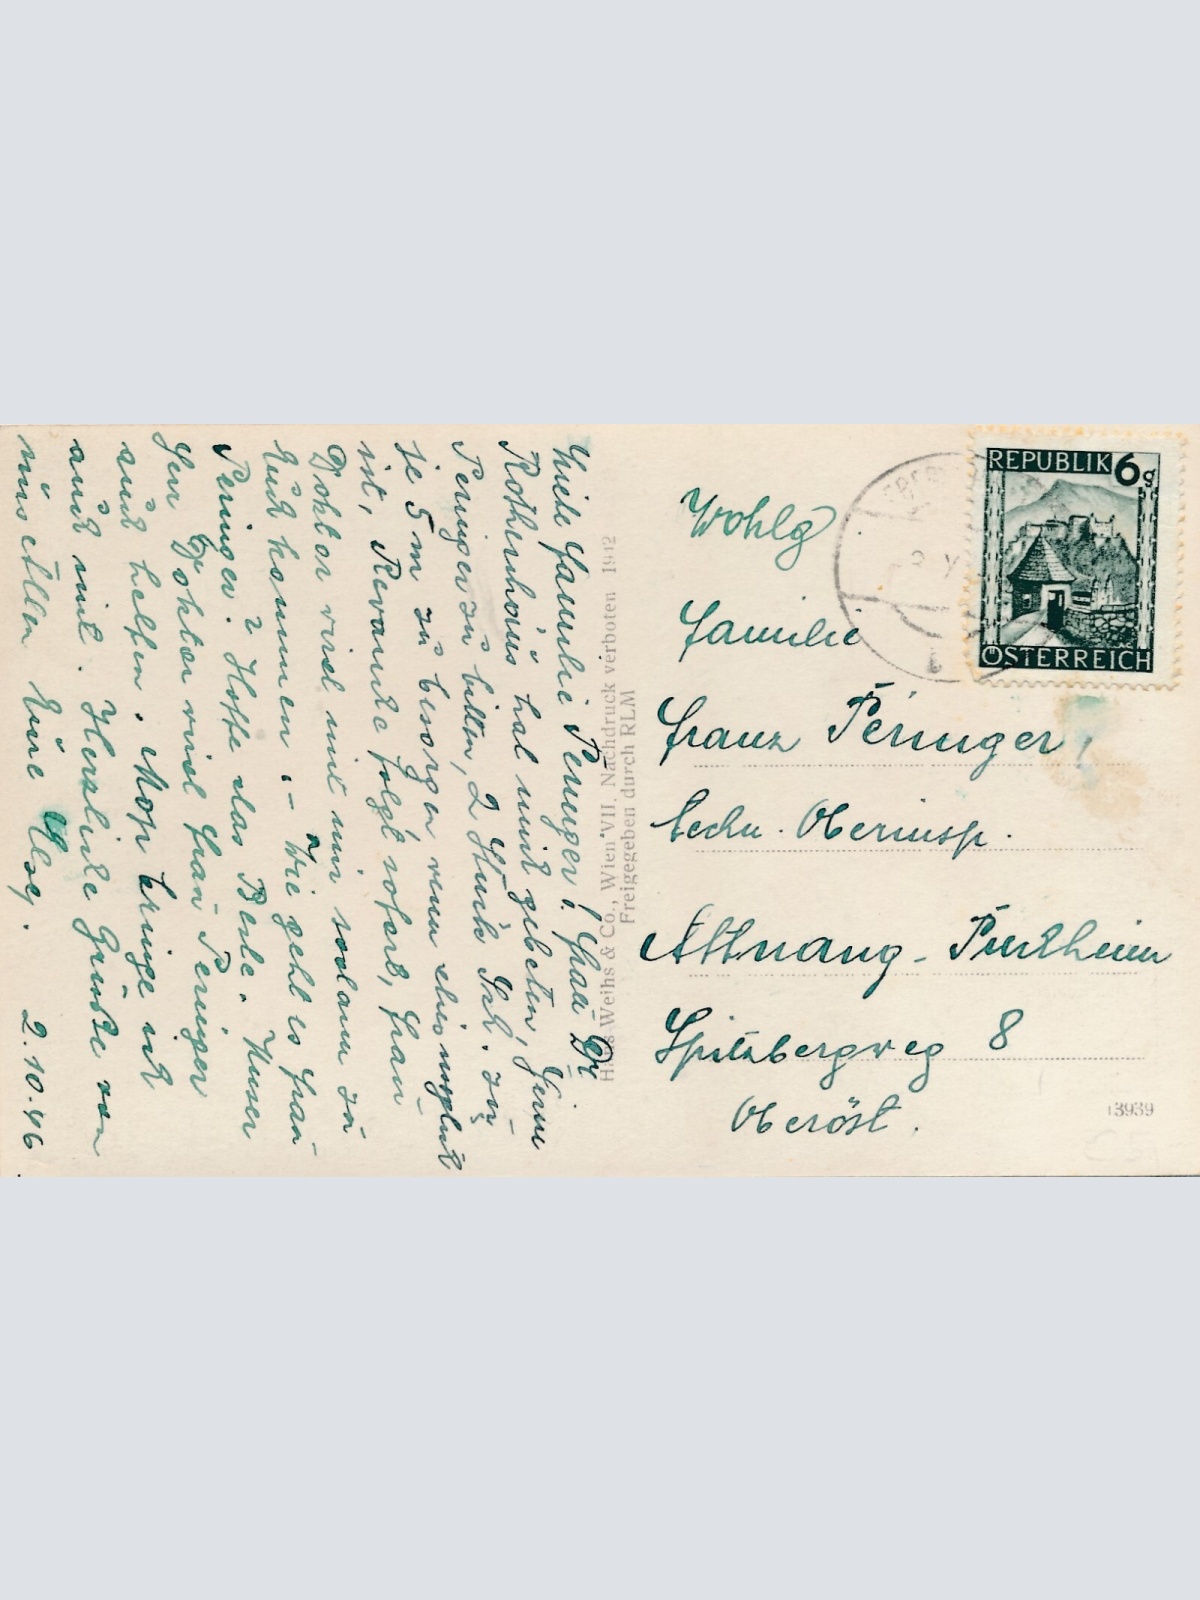 Liebe Familie Peninger! Frau Dr.
Rothernhäus hat mich gebeten, Herrn
Peninger zu bitten, 2 Stück zu
je 5 m zu besorgen wenn dies möglich
ist, Revanche folgt sofort, Frau
Doktor wird mit mir sodann zu
Euch kommen. – Wie geht es Frau
Peninger? Hoffe das Beste. Unser
Herr Doktor wird Frau Peninger
auch helfen. bringe ich
auch mit. Herzliche Grüße von
uns Allen Eure
2.10.46
Hans Weihs & Co., Wien VII. Nachdruck verboten 1942
Freigegeben durch RLM
REPUBLIK 6g
ÖSTERREICH
Wohlg
Familie
Franz Peninger,
techn. Oberinsp.
Attnang-Puchheim
Spitzbergweg 8
Oberöst.
13939